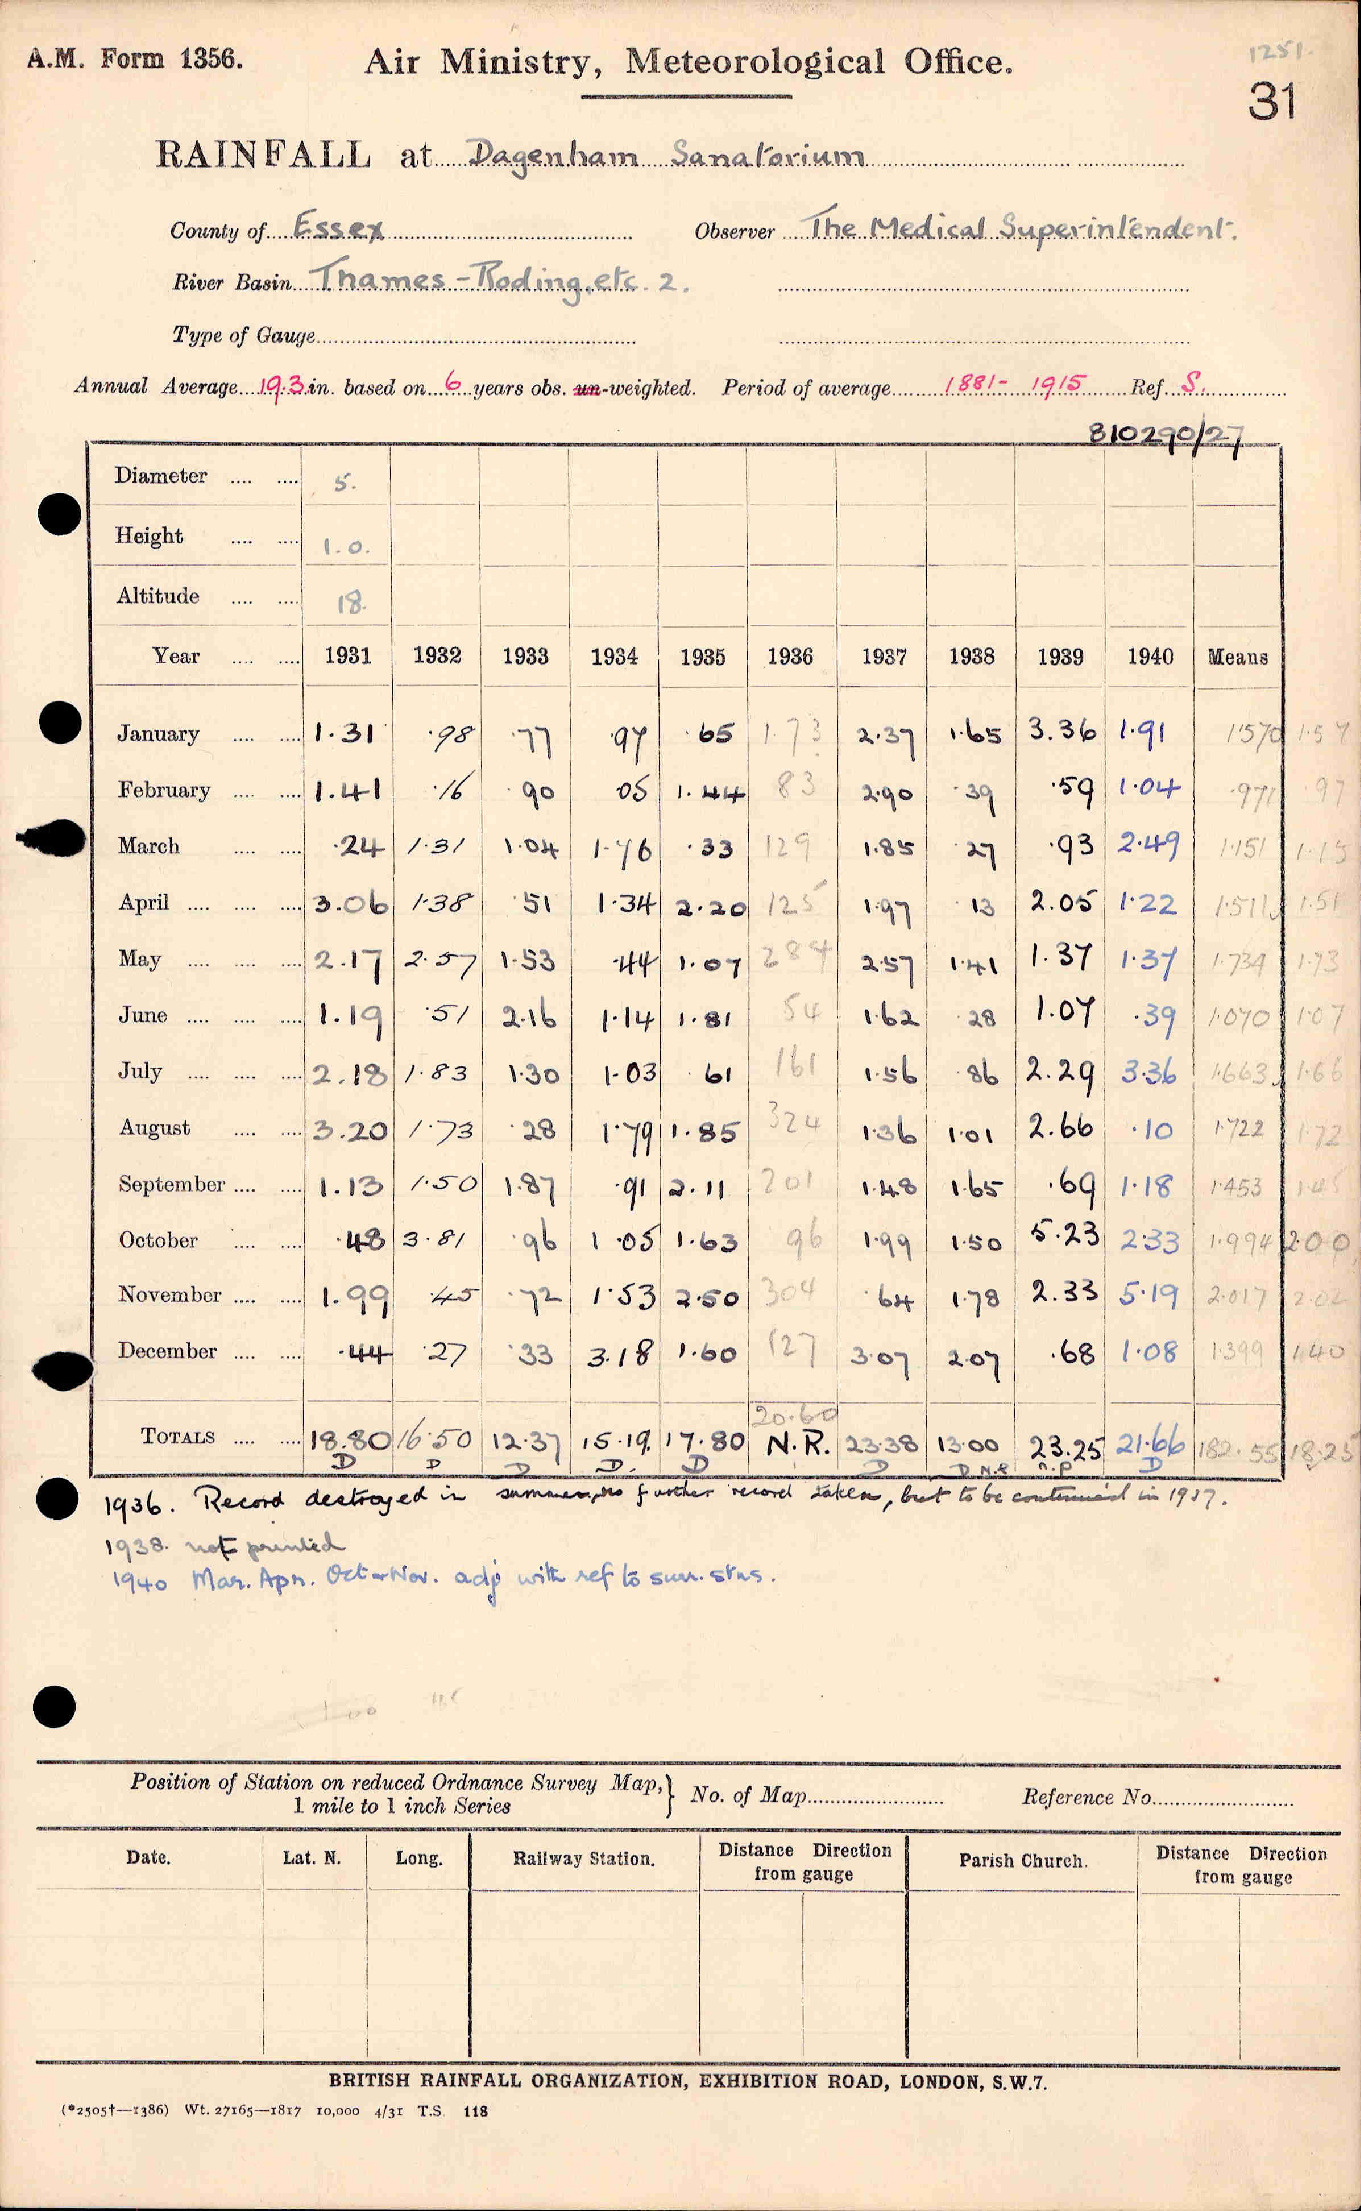 1251.
A.M. Form 1356. Air Ministry, Meteorological Office.
31
RAINFALL at Dagenham Sanatorium
County of Essex Observer The Medical Superintendent.
River Basin Thames - Roding, etc. 2.
Type of Gauge
Annual Average 19.3 in. based on 6 years obs. un-weighted. Period of average 1881- 1915 Ref. S.
810290/27
Diameter 5.
Height 1.0.
Altitude 18.
Year 1931 1932 1933 1934 1935 1936 1937 1938 1939 1940 Means
January 1.31 .98 .77 .97 .65 1.73 2.37 1.65 3.36 1.91 1.570 1.57
February 1.41 .16 .90 .05 1.44 83 2.90 .39 .59 1.04 .971 .97
March .24 1.31 1.04 1.76 .33 129 1.85 .27 .93 2.49 1.151 1.15
April 3.06 1.38 .51 1.34 2.20 125 1.97 .13 2.05 1.22 1.511 1.51
May 2.17 2.57 1.53 .44 1.07 284 2.57 1.41 1.37 1.37 1.734 1.73
June 1.19 .51 2.16 1.14 1.81 54 1.62 .28 1.07 .39 1.070 1.07
July 2.18 1.83 1.30 1.03 .61 161 1.56 .86 2.29 3.36 1.663 1.66
August 3.20 1.73 .28 1.79 1.85 324 1.36 1.01 2.66 .10 1.722 1.72
September 1.13 1.50 1.87 .91 2.11 201 1.48 1.65 .69 1.18 1.453 1.45
October .48 3.81 .96 1.05 1.63 96 1.99 1.50 5.23 2.33 1.994 2.00
November 1.99 .45 .72 1.53 2.50 304 .64 1.78 2.33 5.19 2.017 2.02
December .44 .27 .33 3.18 1.60 127 3.07 2.07 .68 1.08 1.399 1.40
20.60
TOTALS 18.80 16.50 12.37 15.19 17.80 N.R. 23.38 13.00 23.25 21.66 182.55 18.25
D D D D. D D D N.P. N.P D
1936. Record destroyed in summer, no further record taken, but to be continued in 1937.
1938. not printed
1940 Mar. Apr. Oct + Nov. adj with ref to surr. stns.
Position of Station on reduced Ordnance Survey Map, } No. of Map Reference No.
1 mile to 1 inch Series
Date. Lat. N. Long. Railway Station. Distance Direction from gauge Parish Church. Distance Direction from gauge
BRITISH RAINFALL ORGANIZATION, EXHIBITION ROAD, LONDON, S.W.7.
(*2505†—1386) Wt. 27165—1817 10,000 4/31 T.S. 118